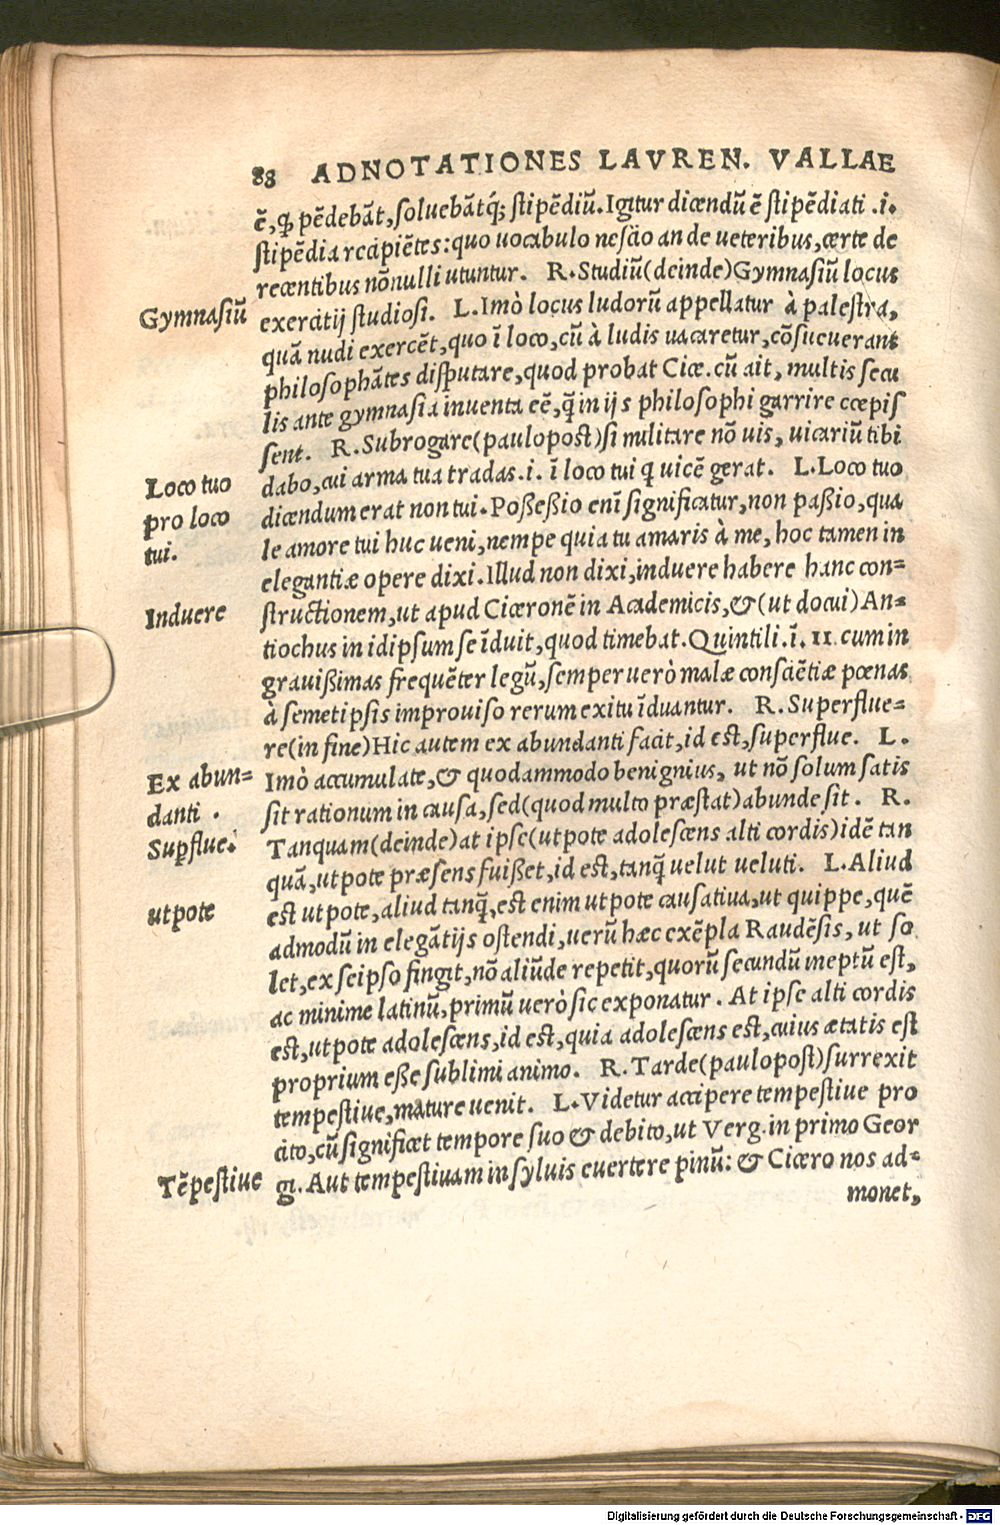 88 ADNOTATIONES LAVREN. VALLAE
ē, ꝙ pēdebāt, soluebātq́; stipēdiū. Igitur dicendū ē stipēdiati .i.
stipēdia recipiētes: quo uocabulo nescio an de ueteribus, certe de
recentibus nōnulli utuntur. R. Studiū (deinde) Gymnasiū locus
Gymnasiū
exercitij studiosi. L. Imò locus ludorū appellatur à palestra,
quā nudi exercēt, quo ī loco, cū à ludis uacaretur, cōsueuerant
philosophātes disputare, quod probat Cice. cū ait, multis secu
lis ante gymnasia inuenta eē, q̄ in ijs philosophi garrire cœpis
sent. R. Subrogare (paulopost) si militare nō uis, uicariū tibi
Loco tuo
pro loco
tui.
dabo, cui arma tua tradas .i. ī loco tui q uicē gerat. L. Loco tuo
dicendum erat non tui. Possessio enī significatur, non passio, qua
le amore tui huc ueni, nempe quia tu amaris à me, hoc tamen in
elegantiæ opere dixi. Illud non dixi, induere habere hanc con=
Induere
structionem, ut apud Ciceronē in Academicis, & (ut docui) An=
tiochus in id ipsum se īduit, quod timebat. Quintili. ī. 11. cum in
grauissimas frequēter legū, semper uerò malæ consciētiæ pœnas
à semetipsis improuiso rerum exitu īduantur. R. Superflue=
re (in fine) Hic autem ex abundanti facit, id est, superflue. L.
Ex abun=
danti .
Suꝑflue.
Imò accumulate, & quodammodo benignius, ut nō solum satis
sit rationum in causa, sed (quod multo præstat) abunde sit. R.
Tanquam (deinde) at ipse (utpote adolescens alti cordis) idē tan
quā, utpote præsens fuisset, id est, tanq̄ uelut ueluti. L. Aliud
utpote
est utpote, aliud tanq̄, est enim utpote causatiua, ut quippe, quē
admodū in elegātijs ostendi, uerū hæc exēpla Raudēsis, ut so
let, ex seipso fingit, nō aliūde repetit, quorū secundū ineptū est,
ac minime latinū, primū uerò sic exponatur. At ipse alti cordis
est, utpote adolescens, id est, quia adolescens est, cuius ætatis est
proprium esse sublimi animo. R. Tarde (paulopost) surrexit
tempestiue, mature uenit. L. Videtur accipere tempestiue pro
cito, cū significet tempore suo & debito, ut Verg. in primo Geor
Tēpestiue
gi. Aut tempestiuam in syluis euertere pinū: & Cicero nos ad=
monet,
Digitalisierung gefördert durch die Deutsche Forschungsgemeinschaft - DFG